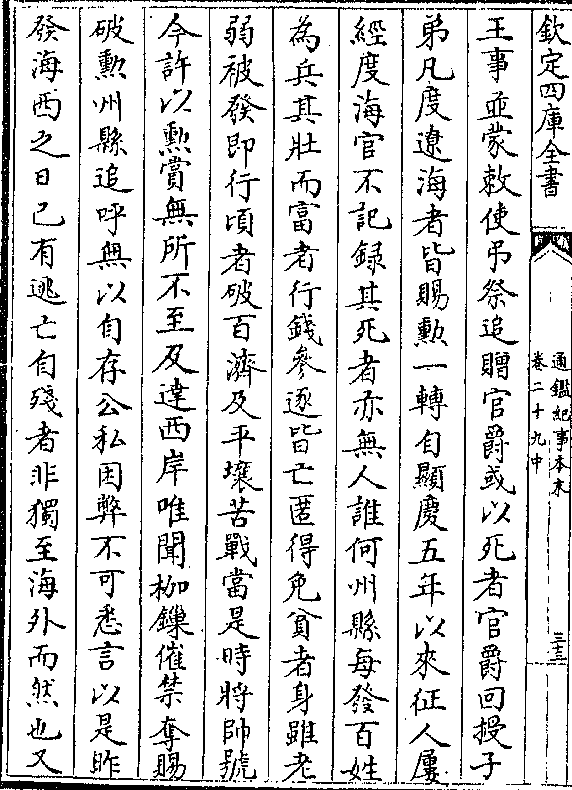 欽定四庫全書
通鑑紀事本末
卷二十九中
三三
王事並蒙敕使弔祭追贈官爵或以死者官爵回授子
弟凡度遼海者皆賜勲一轉自顯慶五年以來征人屢
經度海官不記録其死者亦無人誰何州縣每發百姓
為兵其壯而富者行錢參逐皆亡匿得免貧者身雖老
弱被發即行頃者破百濟及平壤苦戰當是時將帥號
今許以勲賞無所不至及達西岸唯聞枷鏁催禁奪賜
破勲州縣追呼無以自存公私困弊不可悉言以是昨
發海西之日已有逃亡自殘者非獨至海外而然也又